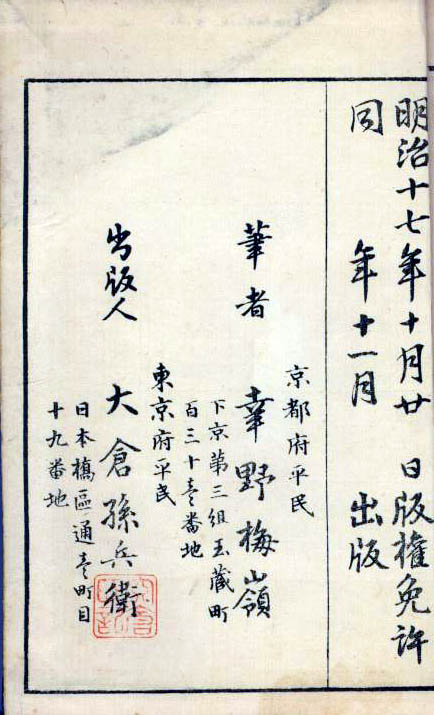 明治十七年十月廿 日版權免許
同 年十一月 出版
京都府平民
筆者 幸野梅嶺
下京第三組玉蔵町
百三十壱番地
東京府平民
出版人 大倉孫兵衛
日本橋區通壱町目
十九番地